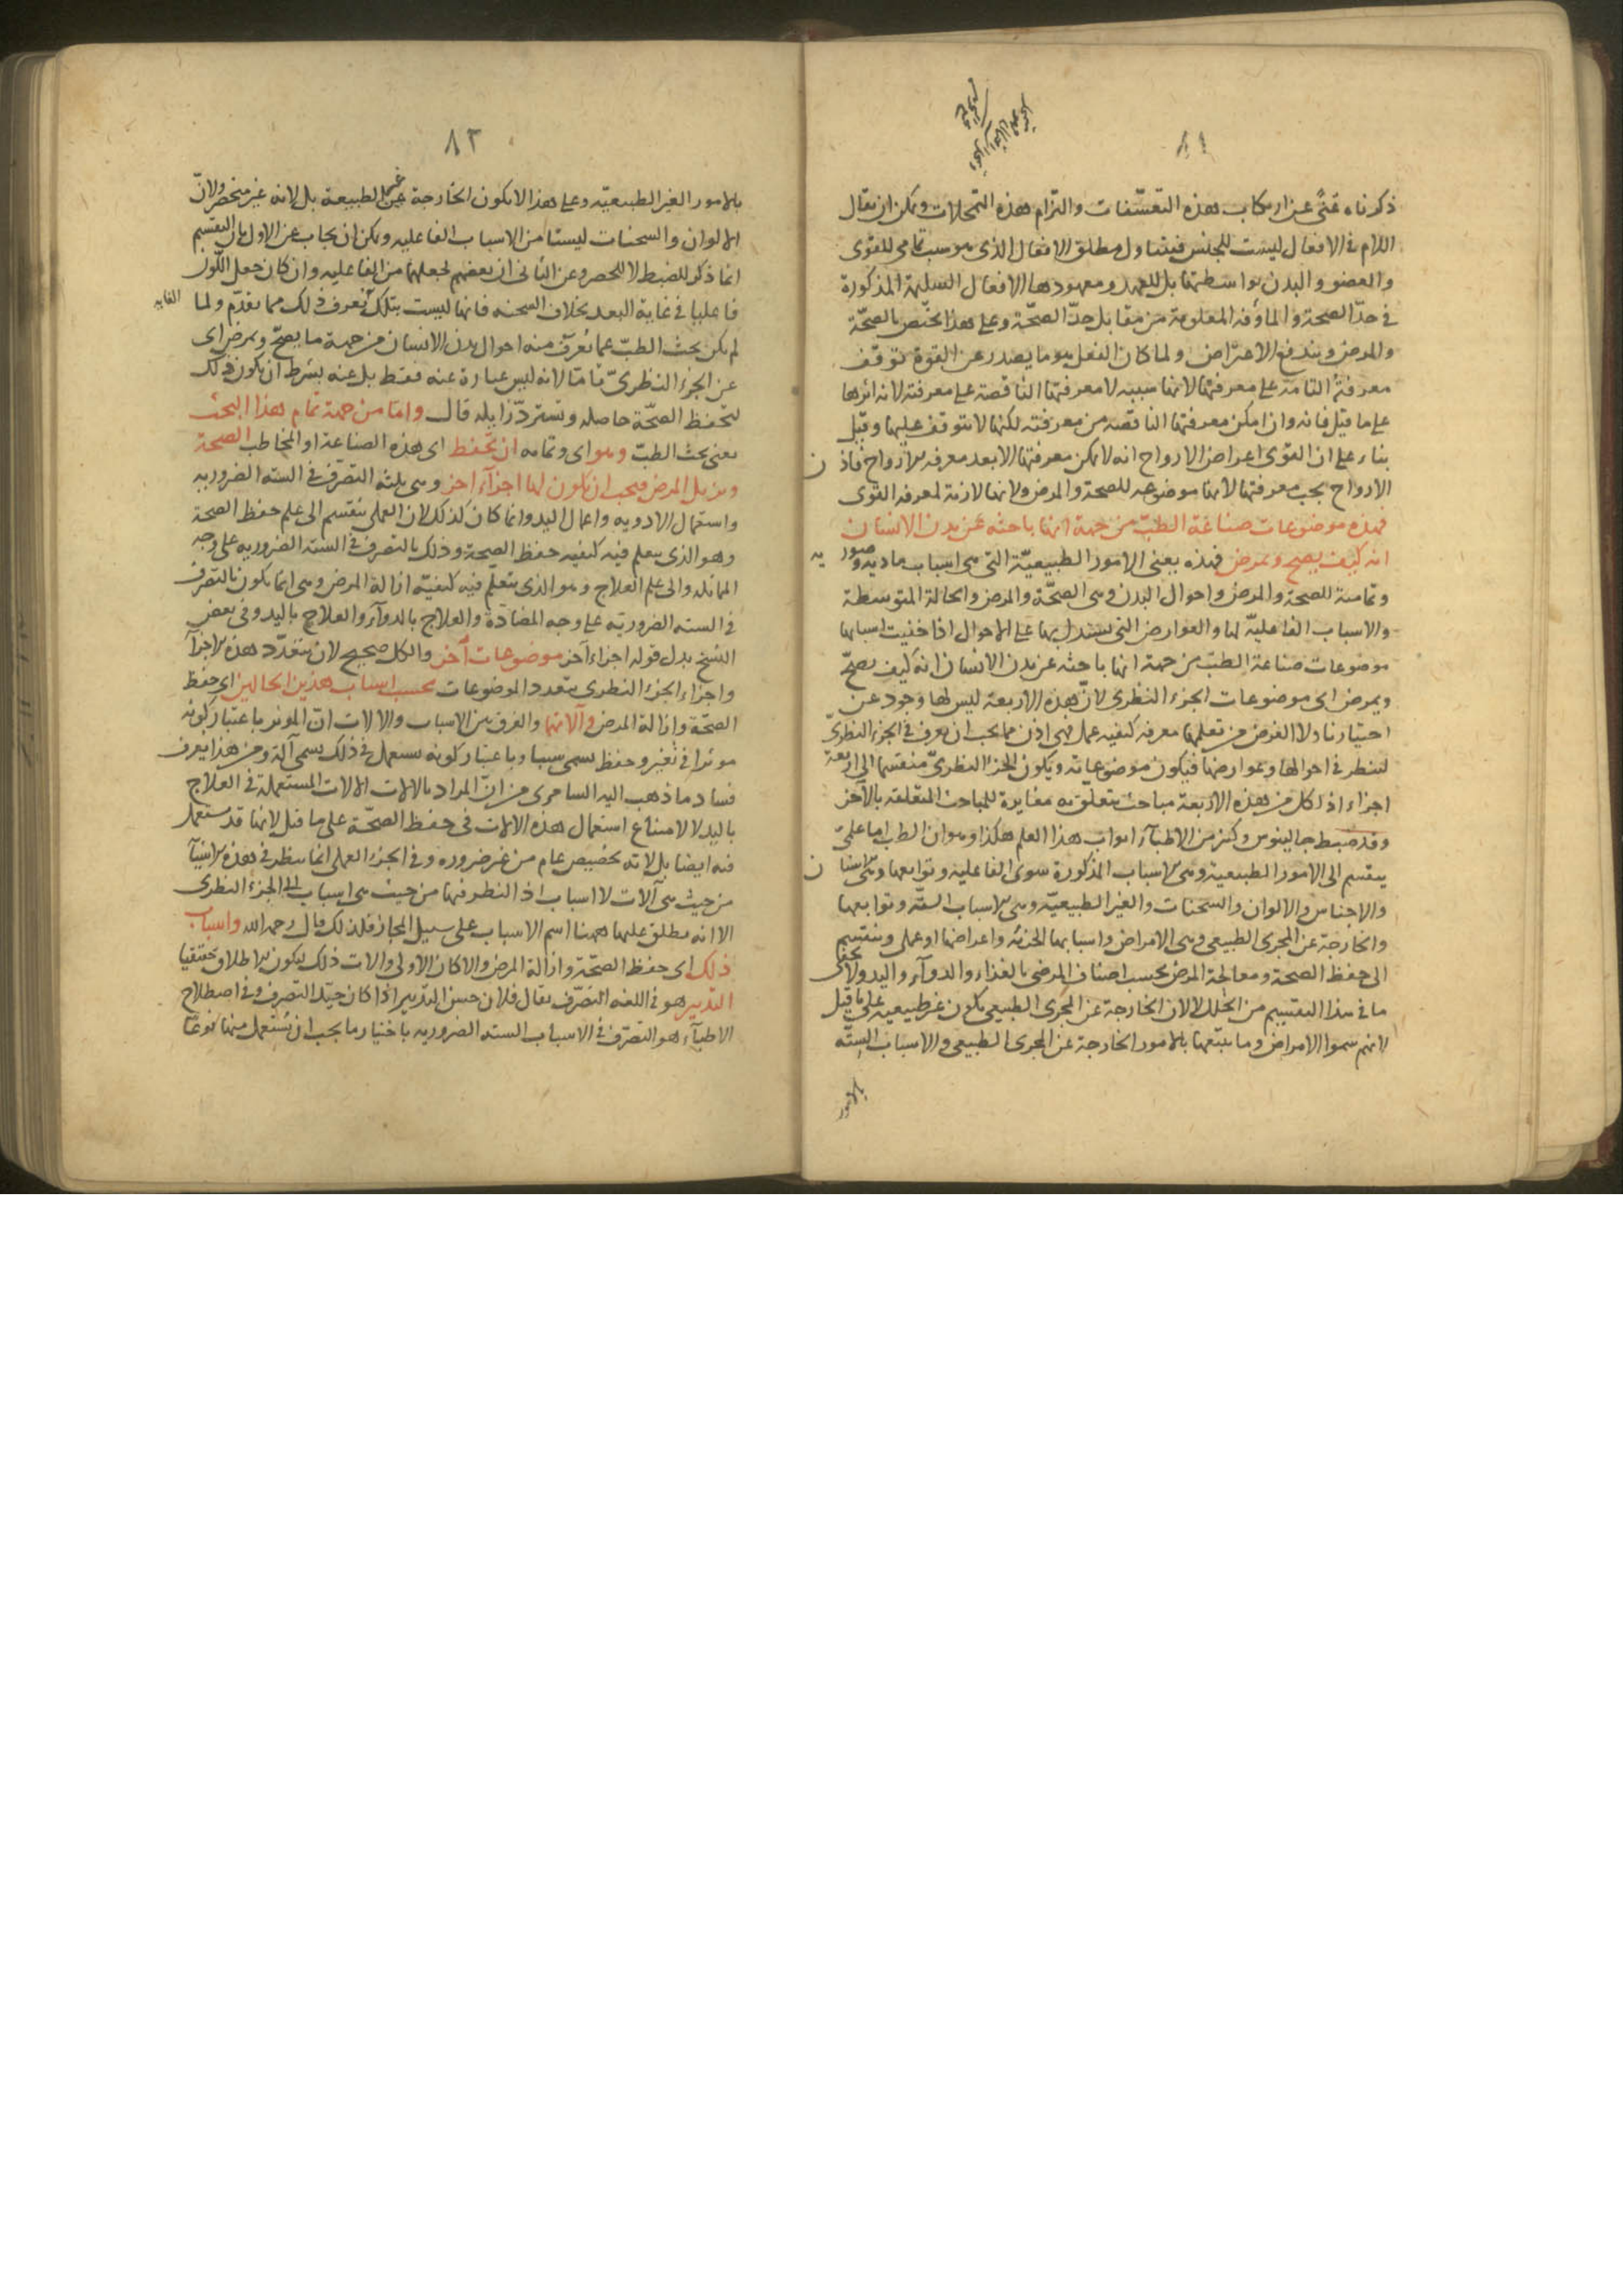 ٨١
ذكرناه غنًى عن ارتكاب هذه التعسّفات والتزام هذه التمحلات ويمكن ان يقال
اللام فى الافعال ليست للجنس فيتناول مطلق الافعال الذى هو سبب تمامى للقوى
والعضو والبدن بواسطتها بل للعهد ومعهودها الافعال السليمة المذكورة
فى حدّ الصحة والماوفه المعلومة من مقابل حدّ الصحّة وعلى هذا يختص بالصحّة
والمرض ويندفع الاعتراض ولما كان الفعل هو ما يصدر عن القوة توقف
معرفتهُ التامة على معرفتها لانها سببه لا معرفتها الناقصة على معرفته لانه اثرها
على ما قيل فانه وان امكن معرفتها الناقصه من معرفته لكنها لا تتوقف عليها وقيل
بناء على ان القوى اعراض الارواح انه لا يمكن معرفتها الا بعد معرفه الارواح فاذن
الارواح يجب معرفتها لانها موضوعه للصحة والمرض ولانها لازمة لمعرفه القوى
فهذه موضوعات صناعة الطبّ من جهة انها باحثه عن بدن الانسان
انه كيف يصح ويمرض فهذه يعنى الامور الطبيعيّة التى هى اسباب ماديه وصوريه
وتمامية للصحة والمرض واحوال البدن وهى الصحّة والمرض والحالة المتوسطة
والاسباب الفاعليّه لها والعوارض التى يستدل بها على الاحوال اذا خفيت اسبابها
موضوعات صناعة الطبّ من جهة انها باحثه عن بدن الانسان انه كيف يصحّ
ويمرض اى موضوعات الجزء النظرى لانّ هذه الاربعة ليس لها وجود عن
اختيارنا ولا الغرض من تعلمها معرفه كيفيه عمل فهى اذن مما يجب ان يعرف فى الجزء النظرىّ
لينظر فى احوالها وعوارضها فيكون موضوعاته ويكون الجزء النظرىّ منقسما الى اربعة
اجزاء اذ لكل من هذه الاربعة مباحث يتعلّق به مغايرة للمباحث المتعلقه بالآخر
وقد ضبط جالينوس وكثير من الاطبآء ابواب هذا العلم هكذا وهو ان الطب اما علمىّ
ينقسم الى الامور الطبيعية وهى الاسباب المذكورة سوى الفاعليه وتوابعها وهى الاسنان
والاجناس والالوان والسحنات والغير الطبيعيّه وهى الاسباب الستّه وتوابعها
والخارجة عن المجرى الطبيعى وهى الامراض واسبابها الجزئه واعراضها او عملى وينقسم
الى حفظ الصحة ومعالجة المرض بحسب اصناف المرضى بالغذاء والدوآء واليد ولا يخفى
ما فى هذا التقسيم من الخلل لا لان الخارجة عن المجرى الطبيعى يكون غير طبيعيه على ما قيل
لانهم سموا الامراض وما يتبعها بالامور الخارجة عن المجرى الطبيعى والاسباب الستّه
بالامور
٨٢
بالامور الغير الطبيعيّه وعلى هذا لا يكون الخارجة عن الطبيعة بل لانه غير منحصر ولانّ
الالوان والسحنات ليستا من الاسباب الفاعليه ويمكن ان يجاب عن الاول بان التقسيم
انما ذكر للضبط لا للحصر وعن الثانى ان بعضهم لجعلهما من الفاعليه وان كان جعل اللّون
فاعليا فى غاية البعد بخلاف السحنه فانها ليست بتلك الغايه تعرف ذلك مما تقدّم ولما
لم يكن بحث الطبّ عما تعرّف منه احوال بدن الانسان من جهة ما يصحّ ويمرض اى
عن الجزء النظرىّ تامّا لانه ليس عبارة عنه فقط بل عنه بشرط ان يكون ذلك
لتحفظ الصحّة حاصله وتستردّ زايله قال واما من جهة تمام هذا البحث
يعنى بحث الطبّ وهو اى وتمامه ان تحفظ اى هذه الصناعة او المخاطب الصحة
وتزيل المرض فيجب ان يكون لها اجزآء اخر وهى ثلثه التصرّف فى السته الضروريه
واستعمال الادويه واعمال اليد وانما كان كذلك لان العملى ينقسم الى علم حفظ الصحة
وهو الذى يتعلم فيه كيفيه حفظ الصحة وذلك بالتصرف فى السته الضروريه على وجه
المماثله والى علم العلاج وهو الذى يتعلّم فيه كيفيّه ازالة المرض وهى انما يكون بالتصرف
فى السته الضروريّه على وجه المضادة والعلاج بالدوآء والعلاج باليد وفى بعض
النسخ بدل قوله اجزاء آخر موضوعات آخر والكل صحيح لان يتعدّد هذه الاجزآء
واجزاء الجزء النظرى بتعدد الموضوعات بحسب اسباب هذين الحالين اى حفظ
الصحّة وازالة المرض وآلاتهما والفرق بين الاسباب والالات انّ المؤثر باعتبار كونه
مؤثرا فى تغيير وحفظ يسمى سببا وباعتبار كونه يستعمل فى ذلك يسمى آلة ومن هذا يعرف
فساد ما ذهب اليه السامرى من انّ المراد بالالات الالات المستعملة فى العلاج
باليد لا لامتناع استعمال هذه الالات فى حفظ الصحّة على ما قيل لانها قد تستعمل
فيه ايضا بل لانه تخصيص عام من غير ضروره وفى الجزء العملى انما ينظر فى هذه الاشيآء
من حيث هى آلات لا اسباب اذ النظر فيها من حيث هى اسباب الى الجزء النظرى
الا انه يطلق عليها ههنا اسم الاسباب على سبيل المجاز فلذلك قال رحمه الله واسباب
ذلك اى حفظ الصحّة وازالة المرض والا كان الاولى والات ذلك ليكون الاطلاق حقيقيا
التدبير هو فى اللغه التصرّف يقال فلان حسن التدبير اذا كان جيّد التصرف وفى اصطلاح
الاطبآء هو التصرّف فى الاسباب السته الضروريه باختيار ما يجب ان يُستعمل منها نوعا